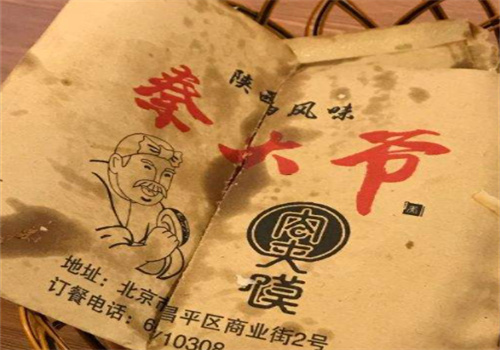 陕西风味
秦大节
肉夹馍
地址：北京市昌平区商业街2号
订餐电话：6
10308